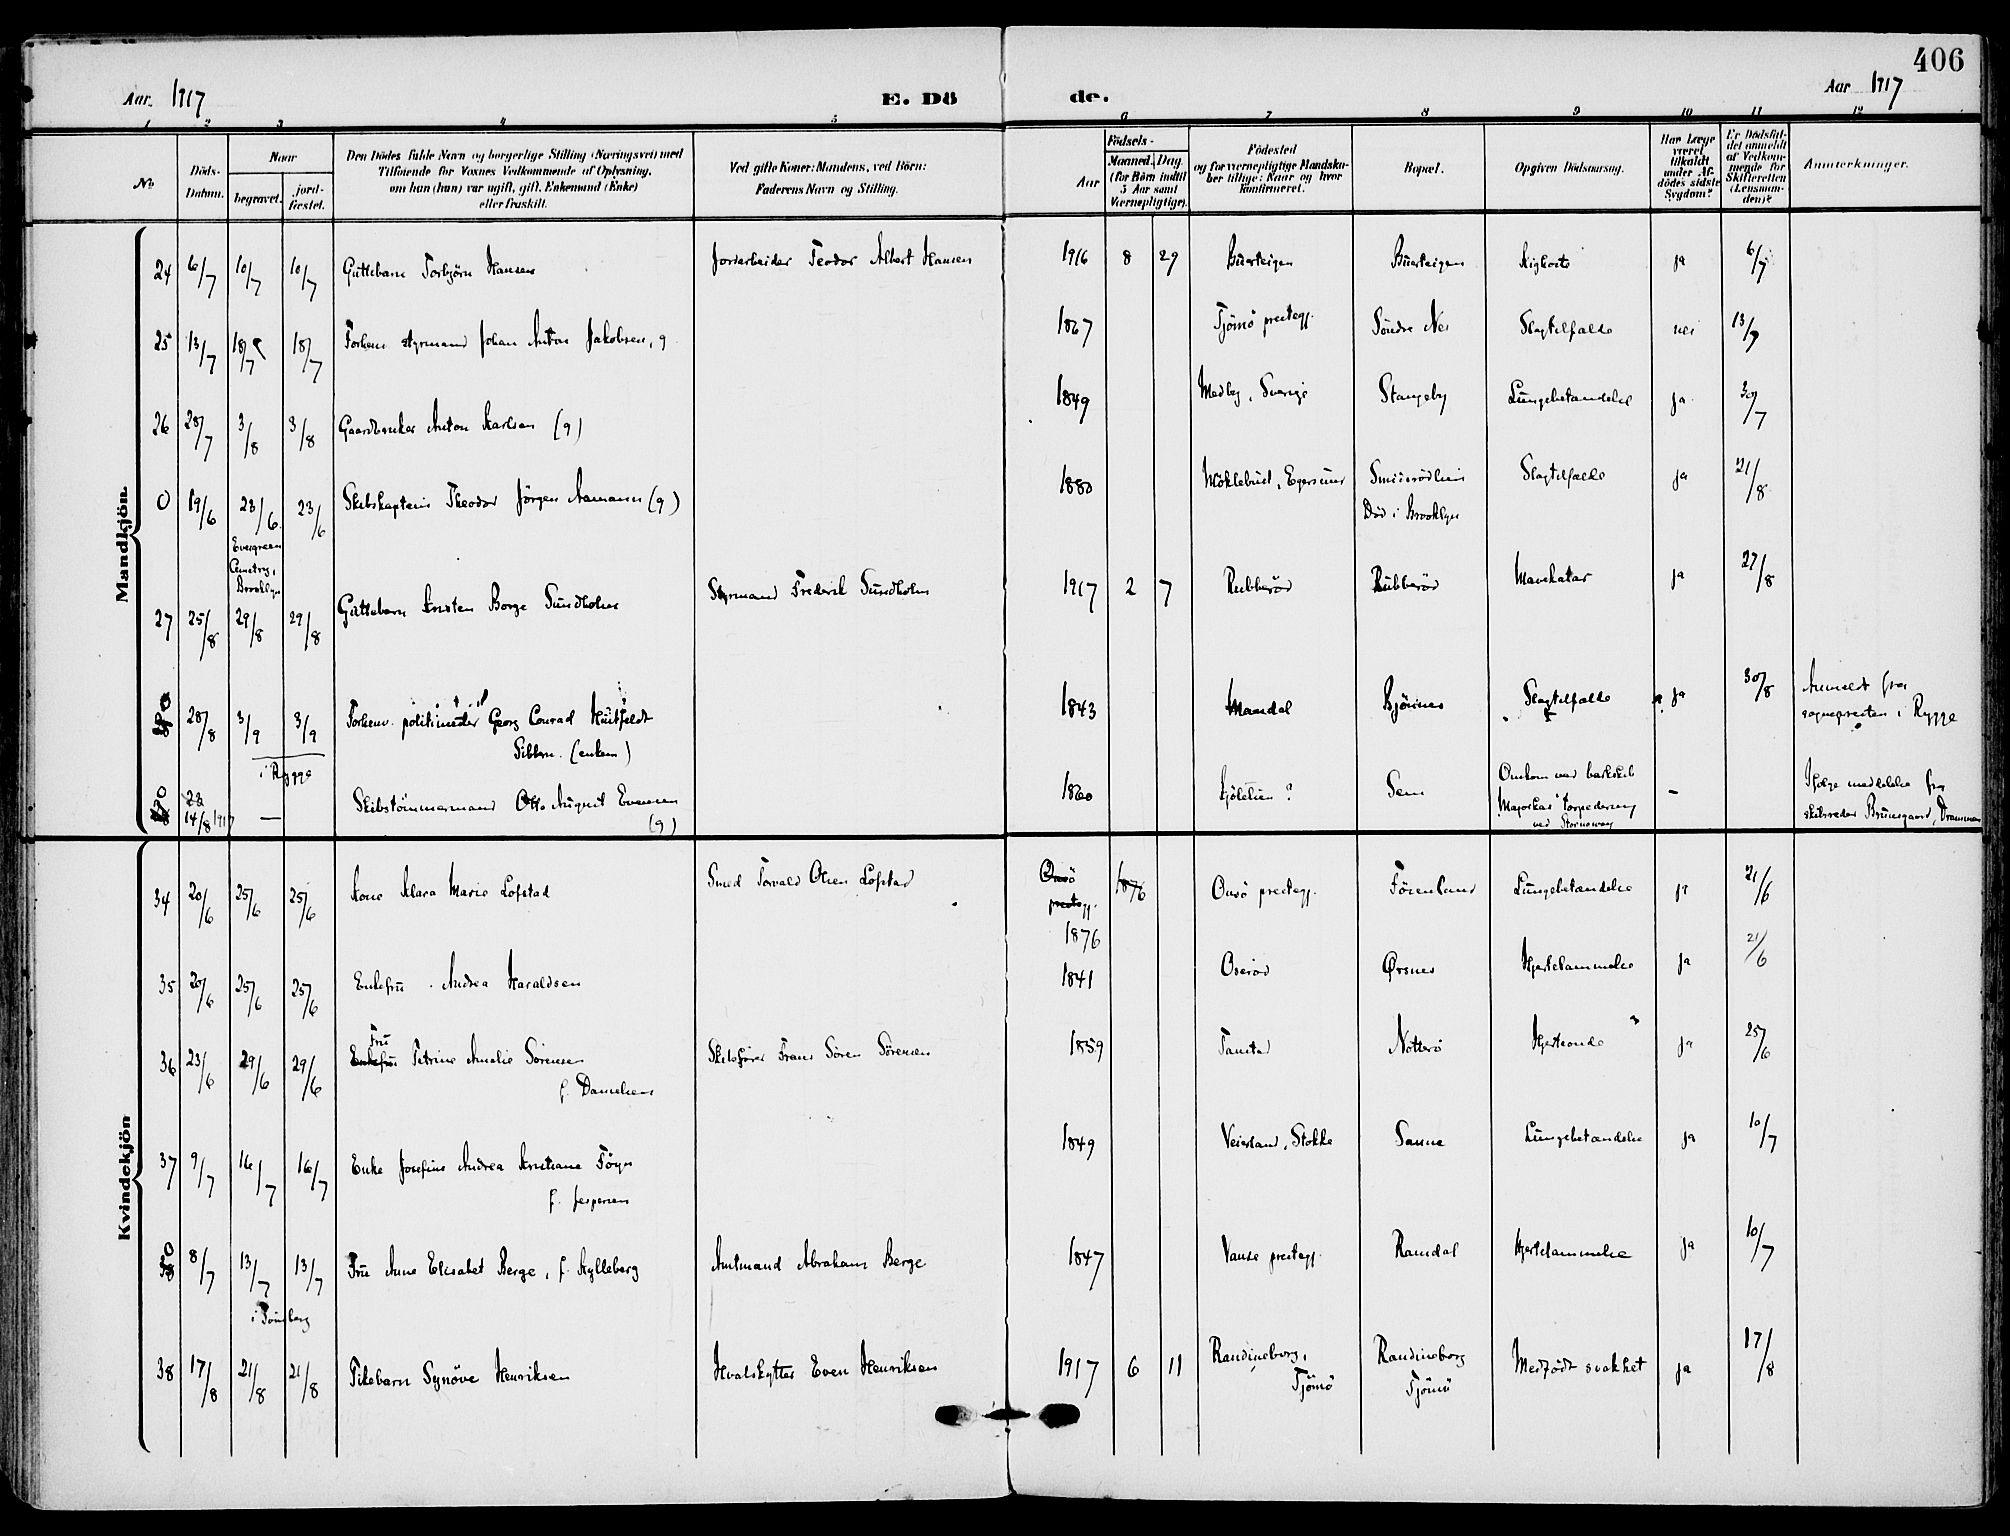 406
Aar 1917 E. Dö de. Aar 1917
1 2 3 4 5 6 7 8 9 10 11 12
No
Döds-Datum.
Naar
begravet.
jord-fæstet.
Den Dödes fulde Navn og borgerlige Stilling (Næringsvei) med
Tilföiende for Voxnes Vedkommende af Oplysning,
om hun (han) var ugift, gift, Enkemand (Enke)
eller fraskilt.
Ved gifte Koner: Mandens, ved Börn:
Faderens Navn og Stilling.
Födsels-
Aar
Maaned. Dag.
(for Börn indtil
5 Aar samt
Værnepligtige).
Födested
og for værnepligtige Mandskaber tillige: Naar og hvor
konfirmeret.
Bopæl.
Opgiven Dödsaarsag.
Har Læge
været
tilkaldt
under Af-
dödes sidste
Sygdom?
Er Dödsfal-
det anmeldt
af Vedkom-
mende for
Skifteretten
(Lensman-
den)?
Anmerkninger.
Mandkjön.
24 6/7 10/7 10/7 Guttebarn Torbjörn Hansen Jordarbeider Teodor Albert Hansen 1916 8 29 Buerteigen Buerteigen Kighoste ja 6/7
25 13/7 18/7 18/7 Forhenv. styrmand Johan Anton Jakobsen, g 1867 Tjömö prestegj. Söndre Nes Slagtilfælde nei 13/7
26 28/7 3/8 3/8 Gaardbruker Anton Karlsen (g) 1849 Medby, Sverige Stangeby Lungebetændelse ja 30/7
0 19/6 23/6 23/6 Skibskaptein Theodor Jörgen Aamann (g) 1880 Möklebust, Egersund Smidsrödhein Slagtilfælde ja 21/8
Evergreen
Cemetry,
Brooklyn
Död i Brooklyn
27 25/8 29/8 29/8 Guttebarn Kristen Borge Sundholm Styrmand Frederik Sundholm 1917 2 7 Rubberöd Rubberöd Mavekatar ja 27/8
0 28/8 3/9 3/9 Forhenv. politimester Georg Conrad Huitfeldt
Sibbern. (enkem) 1843 Mandal Bjönnes Slagtilfælde ja 30/8 Anmeldt fra
sognepresten i Rygge
i Rygge
0 14/8 1917 — Skibstömmermand Otto August Evensen
(g) 1860 Kjölelien? Sem Omkom ved barkskib
"Majorkas" torpedering
ved Stornoway — Ifölge meddelelse fra
skibsreder Bruusgaard, Drammen
Kvindekjön
34 20/6 25/6 25/6 Kone Klara Marie Lofstad Smed Torvald Olsen Lofstad Onsö
prestegj. 1876
1876 Onsö prestegj. Föienland Lungebetændelse ja 21/6
35 20/6 25/6 25/6 Enkefru Andrea Haraldsen 1841 Oseröd Örsnes Hjertelammelse ja 21/6
36 23/6 29/6 29/6 Fru
Enkefru Petrine Amalie Sörensen
f. Danielsen Skibsförer Frans Sören Sörensen 1859 Fanstad Nötterö Hjerteonde ja 25/6
37 9/7 16/7 16/7 Enke Josefine Andrea Kristiane Föyn
f. Jespersen 1849 Veierland, Stokke Sanne Lungebetændelse ja 10/7
0 8/7 13/7 13/7 Fru Anne Elisabet Berge, f. Kylleberg Amtmand Abraham Berge 1847 Vanse prestegj. Ramdal Hjertelammelse ja 10/7
i Tönsberg
38 17/8 21/8 21/8 Pikebarn Synöve Henriksen Hvalskytter Even Henriksen 1917 6 11 Randineborg,
Tjömö Randineborg
Tjömö Medfödt svakhet ja 17/8